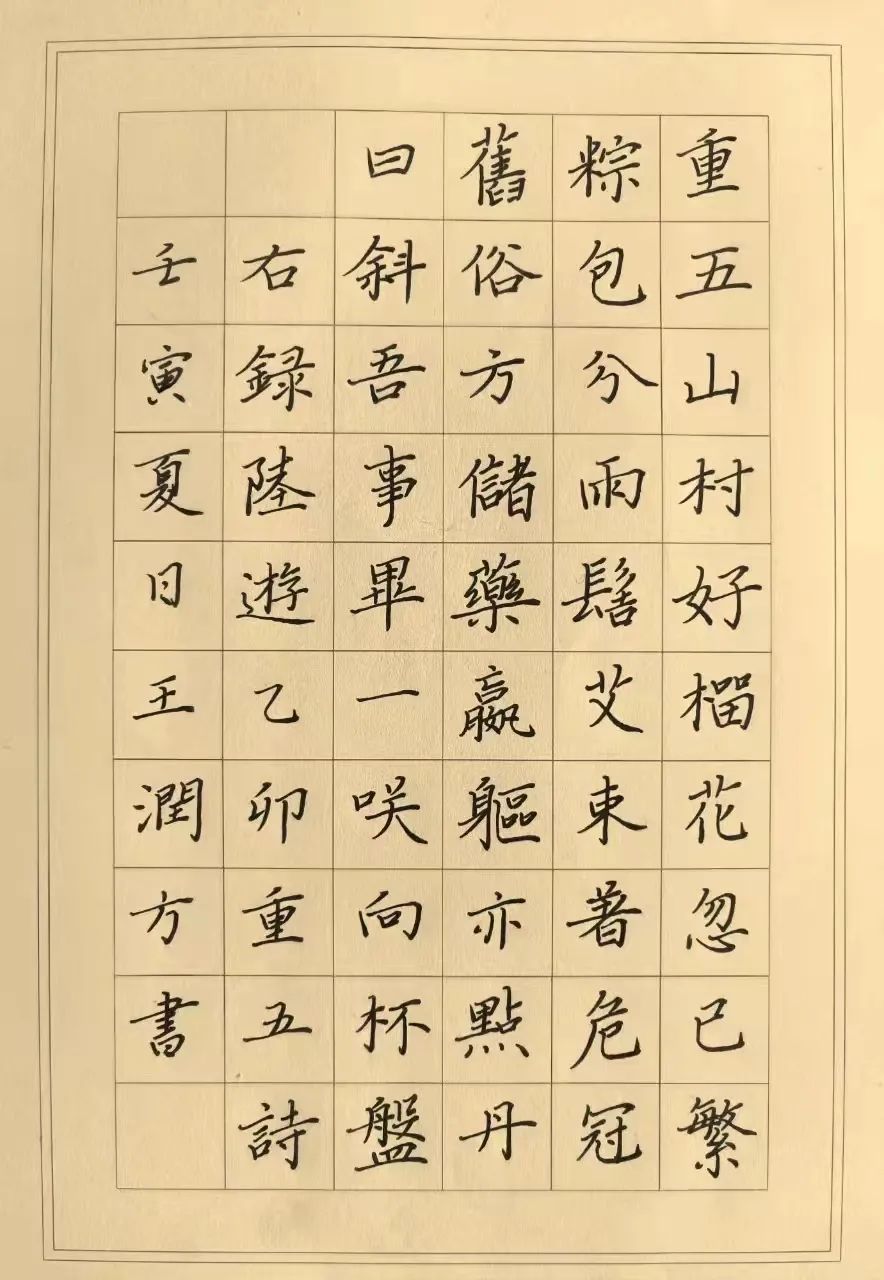 重五山村好榴花忽已繁
粽包分雨髻艾束著危冠
舊俗方儲藥羸軀亦點丹
曰斜吾事畢一咲向杯盤
右録陸遊乙卯重五詩
壬寅夏日王潤方書